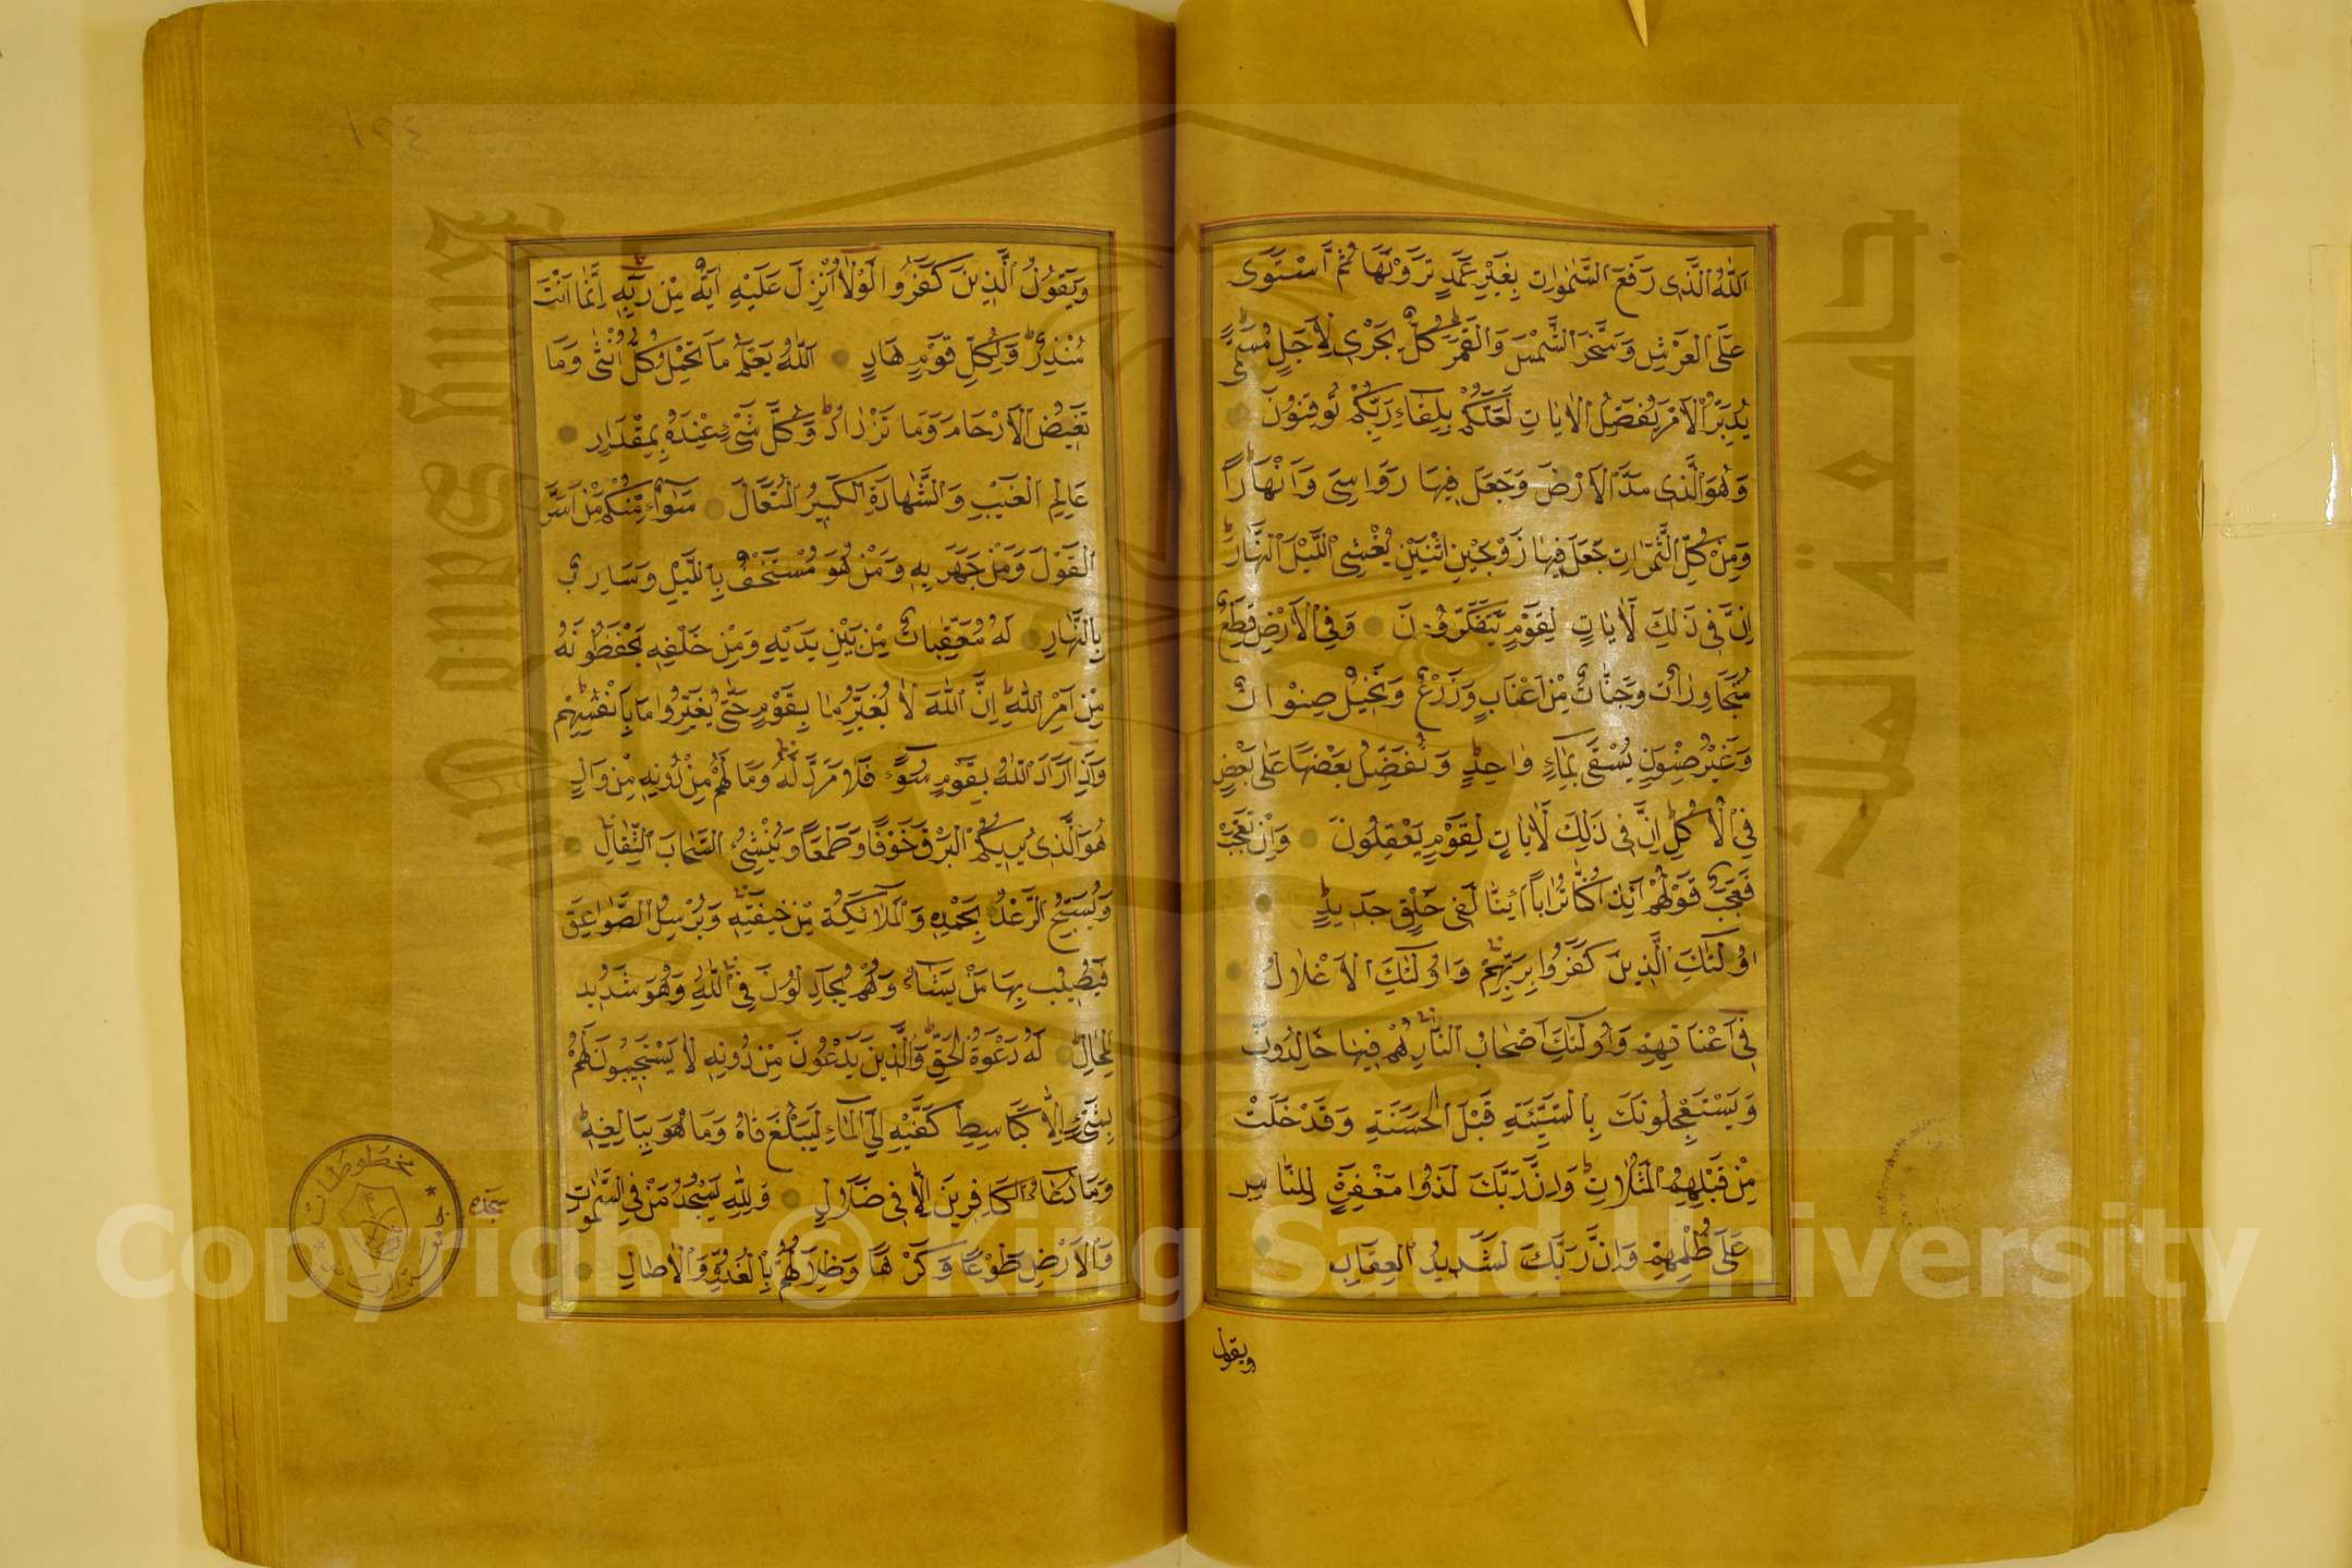 اَللّٰهُ الَّذِى رَفَعَ السَّمٰوَاتِ بِغَيْرِ عَمَدٍ تَرَوْنَهَا ثُمَّ اسْتَوٰى
عَلَى الْعَرْشِ وَسَخَّرَ الشَّمْسَ وَالْقَمَرَ كُلٌّ يَجْرٖى لِاَجَلٍ مُسَمًّى
يُدَبِّرُ الْاَمْرَ يُفَصِّلُ الْاٰيَاتِ لَعَلَّكُمْ بِلِقَاءِ رَبِّكُمْ تُوقِنُونَ
وَهُوَ الَّذٖى مَدَّ الْاَرْضَ وَجَعَلَ فٖيهَا رَوَاسِىَ وَاَنْهَارًا
وَمِنْ كُلِّ الثَّمَرَاتِ جَعَلَ فٖيهَا زَوْجَيْنِ اثْنَيْنِ يُغْشِى اللَّيْلَ النَّهَارَ
اِنَّ فٖى ذٰلِكَ لَاٰيَاتٍ لِقَوْمٍ يَتَفَكَّرُونَ وَفِى الْاَرْضِ قِطَعٌ
مُتَجَاوِرَاتٌ وَجَنَّاتٌ مِنْ اَعْنَابٍ وَزَرْعٌ وَنَخٖيلٌ صِنْوَانٌ
وَغَيْرُ صِنْوَانٍ يُسْقٰى بِمَاءٍ وَاحِدٍ وَنُفَضِّلُ بَعْضَهَا عَلٰى بَعْضٍ
فِى الْاُكُلِ اِنَّ فٖى ذٰلِكَ لَاٰيَاتٍ لِقَوْمٍ يَعْقِلُونَ وَاِنْ تَعْجَبْ
فَعَجَبٌ قَوْلُهُمْ اَئِذَا كُنَّا تُرَابًا اَئِنَّا لَفٖى خَلْقٍ جَدٖيدٍ
اُولٰئِكَ الَّذٖينَ كَفَرُوا بِرَبِّهِمْ وَاُولٰئِكَ الْاَغْلَالُ
فٖى اَعْنَاقِهِمْ وَاُولٰئِكَ اَصْحَابُ النَّارِ هُمْ فٖيهَا خَالِدُونَ
وَيَسْتَعْجِلُونَكَ بِالسَّيِّئَةِ قَبْلَ الْحَسَنَةِ وَقَدْ خَلَتْ
مِنْ قَبْلِهِمُ الْمَثُلَاتُ وَاِنَّ رَبَّكَ لَذُوا مَغْفِرَةٍ لِلنَّاسِ
عَلٰى ظُلْمِهِمْ وَاِنَّ رَبَّكَ لَشَدٖيدُ الْعِقَابِ
ويقول
وَيَقُولُ الَّذٖينَ كَفَرُوا لَوْلَا اُنْزِلَ عَلَيْهِ اٰيَةٌ مِنْ رَبِّهٖ اِنَّمَا اَنْتَ
مُنْذِرٌ وَلِكُلِّ قَوْمٍ هَادٍ اَللّٰهُ يَعْلَمُ مَا تَحْمِلُ كُلُّ اُنْثٰى وَمَا
تَغٖيضُ الْاَرْحَامُ وَمَا تَزْدَادُ وَكُلُّ شَىْءٍ عِنْدَهُ بِمِقْدَارٍ
عَالِمُ الْغَيْبِ وَالشَّهَادَةِ الْكَبٖيرُ الْمُتَعَالِ سَوَاءٌ مِنْكُمْ مَنْ اَسَرَّ
الْقَوْلَ وَمَنْ جَهَرَ بِهٖ وَمَنْ هُوَ مُسْتَخْفٍ بِاللَّيْلِ وَسَارِبٌ
بِالنَّهَارِ لَهُ مُعَقِّبَاتٌ مِنْ بَيْنِ يَدَيْهِ وَمِنْ خَلْفِهٖ يَحْفَظُونَهُ
مِنْ اَمْرِ اللّٰهِ اِنَّ اللّٰهَ لَا يُغَيِّرُ مَا بِقَوْمٍ حَتّٰى يُغَيِّرُوا مَا بِاَنْفُسِهِمْ
وَاِذَا اَرَادَ اللّٰهُ بِقَوْمٍ سُوءًا فَلَا مَرَدَّ لَهُ وَمَا لَهُمْ مِنْ دُونِهٖ مِنْ وَالٍ
هُوَ الَّذٖى يُرٖيكُمُ الْبَرْقَ خَوْفًا وَطَمَعًا وَيُنْشِئُ السَّحَابَ الثِّقَالَ
وَيُسَبِّحُ الرَّعْدُ بِحَمْدِهٖ وَالْمَلَائِكَةُ مِنْ خٖيفَتِهٖ وَيُرْسِلُ الصَّوَاعِقَ
فَيُصٖيبُ بِهَا مَنْ يَشَاءُ وَهُمْ يُجَادِلُونَ فِى اللّٰهِ وَهُوَ شَدٖيدُ
الْمِحَالِ لَهُ دَعْوَةُ الْحَقِّ وَالَّذٖينَ يَدْعُونَ مِنْ دُونِهٖ لَا يَسْتَجٖيبُونَ لَهُمْ
بِشَىْءٍ اِلَّا كَبَاسِطِ كَفَّيْهِ اِلَى الْمَاءِ لِيَبْلُغَ فَاهُ وَمَا هُوَ بِبَالِغِهٖ
وَمَا دُعَاءُ الْكَافِرٖينَ اِلَّا فٖى ضَلَالٍ وَلِلّٰهِ يَسْجُدُ مَنْ فِى السَّمٰوَاتِ
وَالْاَرْضِ طَوْعًا وَكَرْهًا وَظِلَالُهُمْ بِالْغُدُوِّ وَالْاٰصَالِ
سجده
Copyright © King Saud University